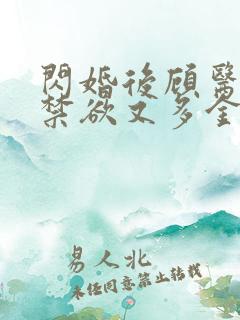 閃婚後顾醫
禁欲又多金
易人北
未任同意禁止转载